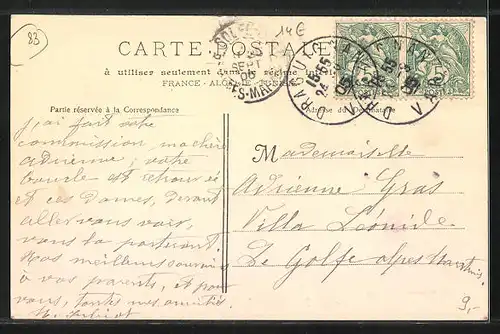 83
14€
CARTE POSTALE
à utiliser seulement dans le régime intérieur
FRANCE - ALGÉRIE - TUNISIE
SEPT
05
ES-MAR
DRAGUIGNAN
15-55
24
05
VAR
Partie réservée à la Correspondance
Adresse du Destinataire
J'ai fait votre
commission, ma chère
Adrienne; votre
boucle est retrouvée
et ces dames, devant
aller vous voir,
vous la porteront.
Nos meilleurs souvenirs
à vos parents, et pour
vous, toutes mes amitiés
Mademoiselle
Adrienne Gras
Villa Léonide
Le Golfe alpes Maritimes
9,-